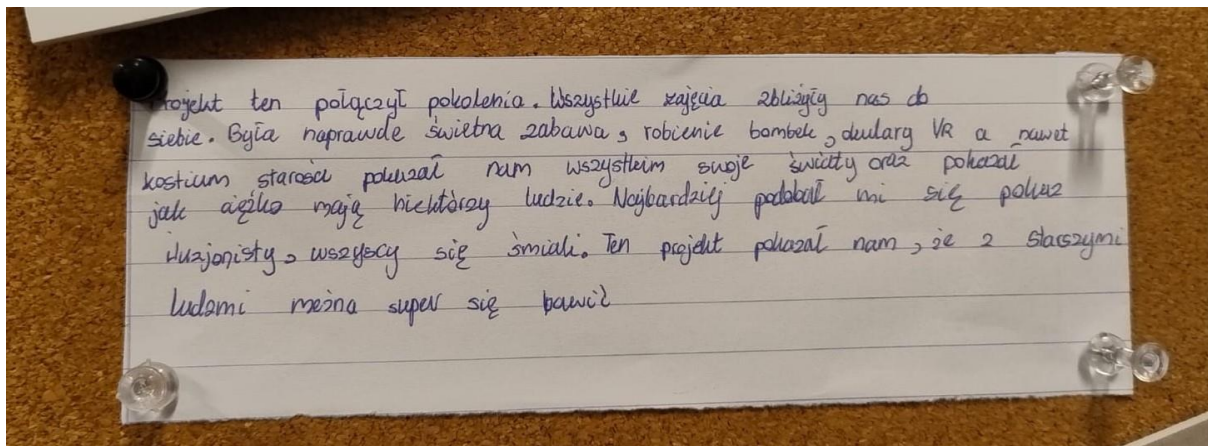 Projekt ten połączył pokolenia. Wszystkie zajęcia zbliżyły nas do
siebie. Była naprawde świetna zabawa, robienie bombek, okulary VR a nawet
kostium starości pokazał nam wszystkim swoje światy oraz pokazał
jak ciężko mają niektórzy ludzie. Najbardziej podobał mi się pokaz
iluzjonisty, wszyscy się śmiali. Ten projekt pokazał nam, że z starszymi
ludźmi można super się bawić